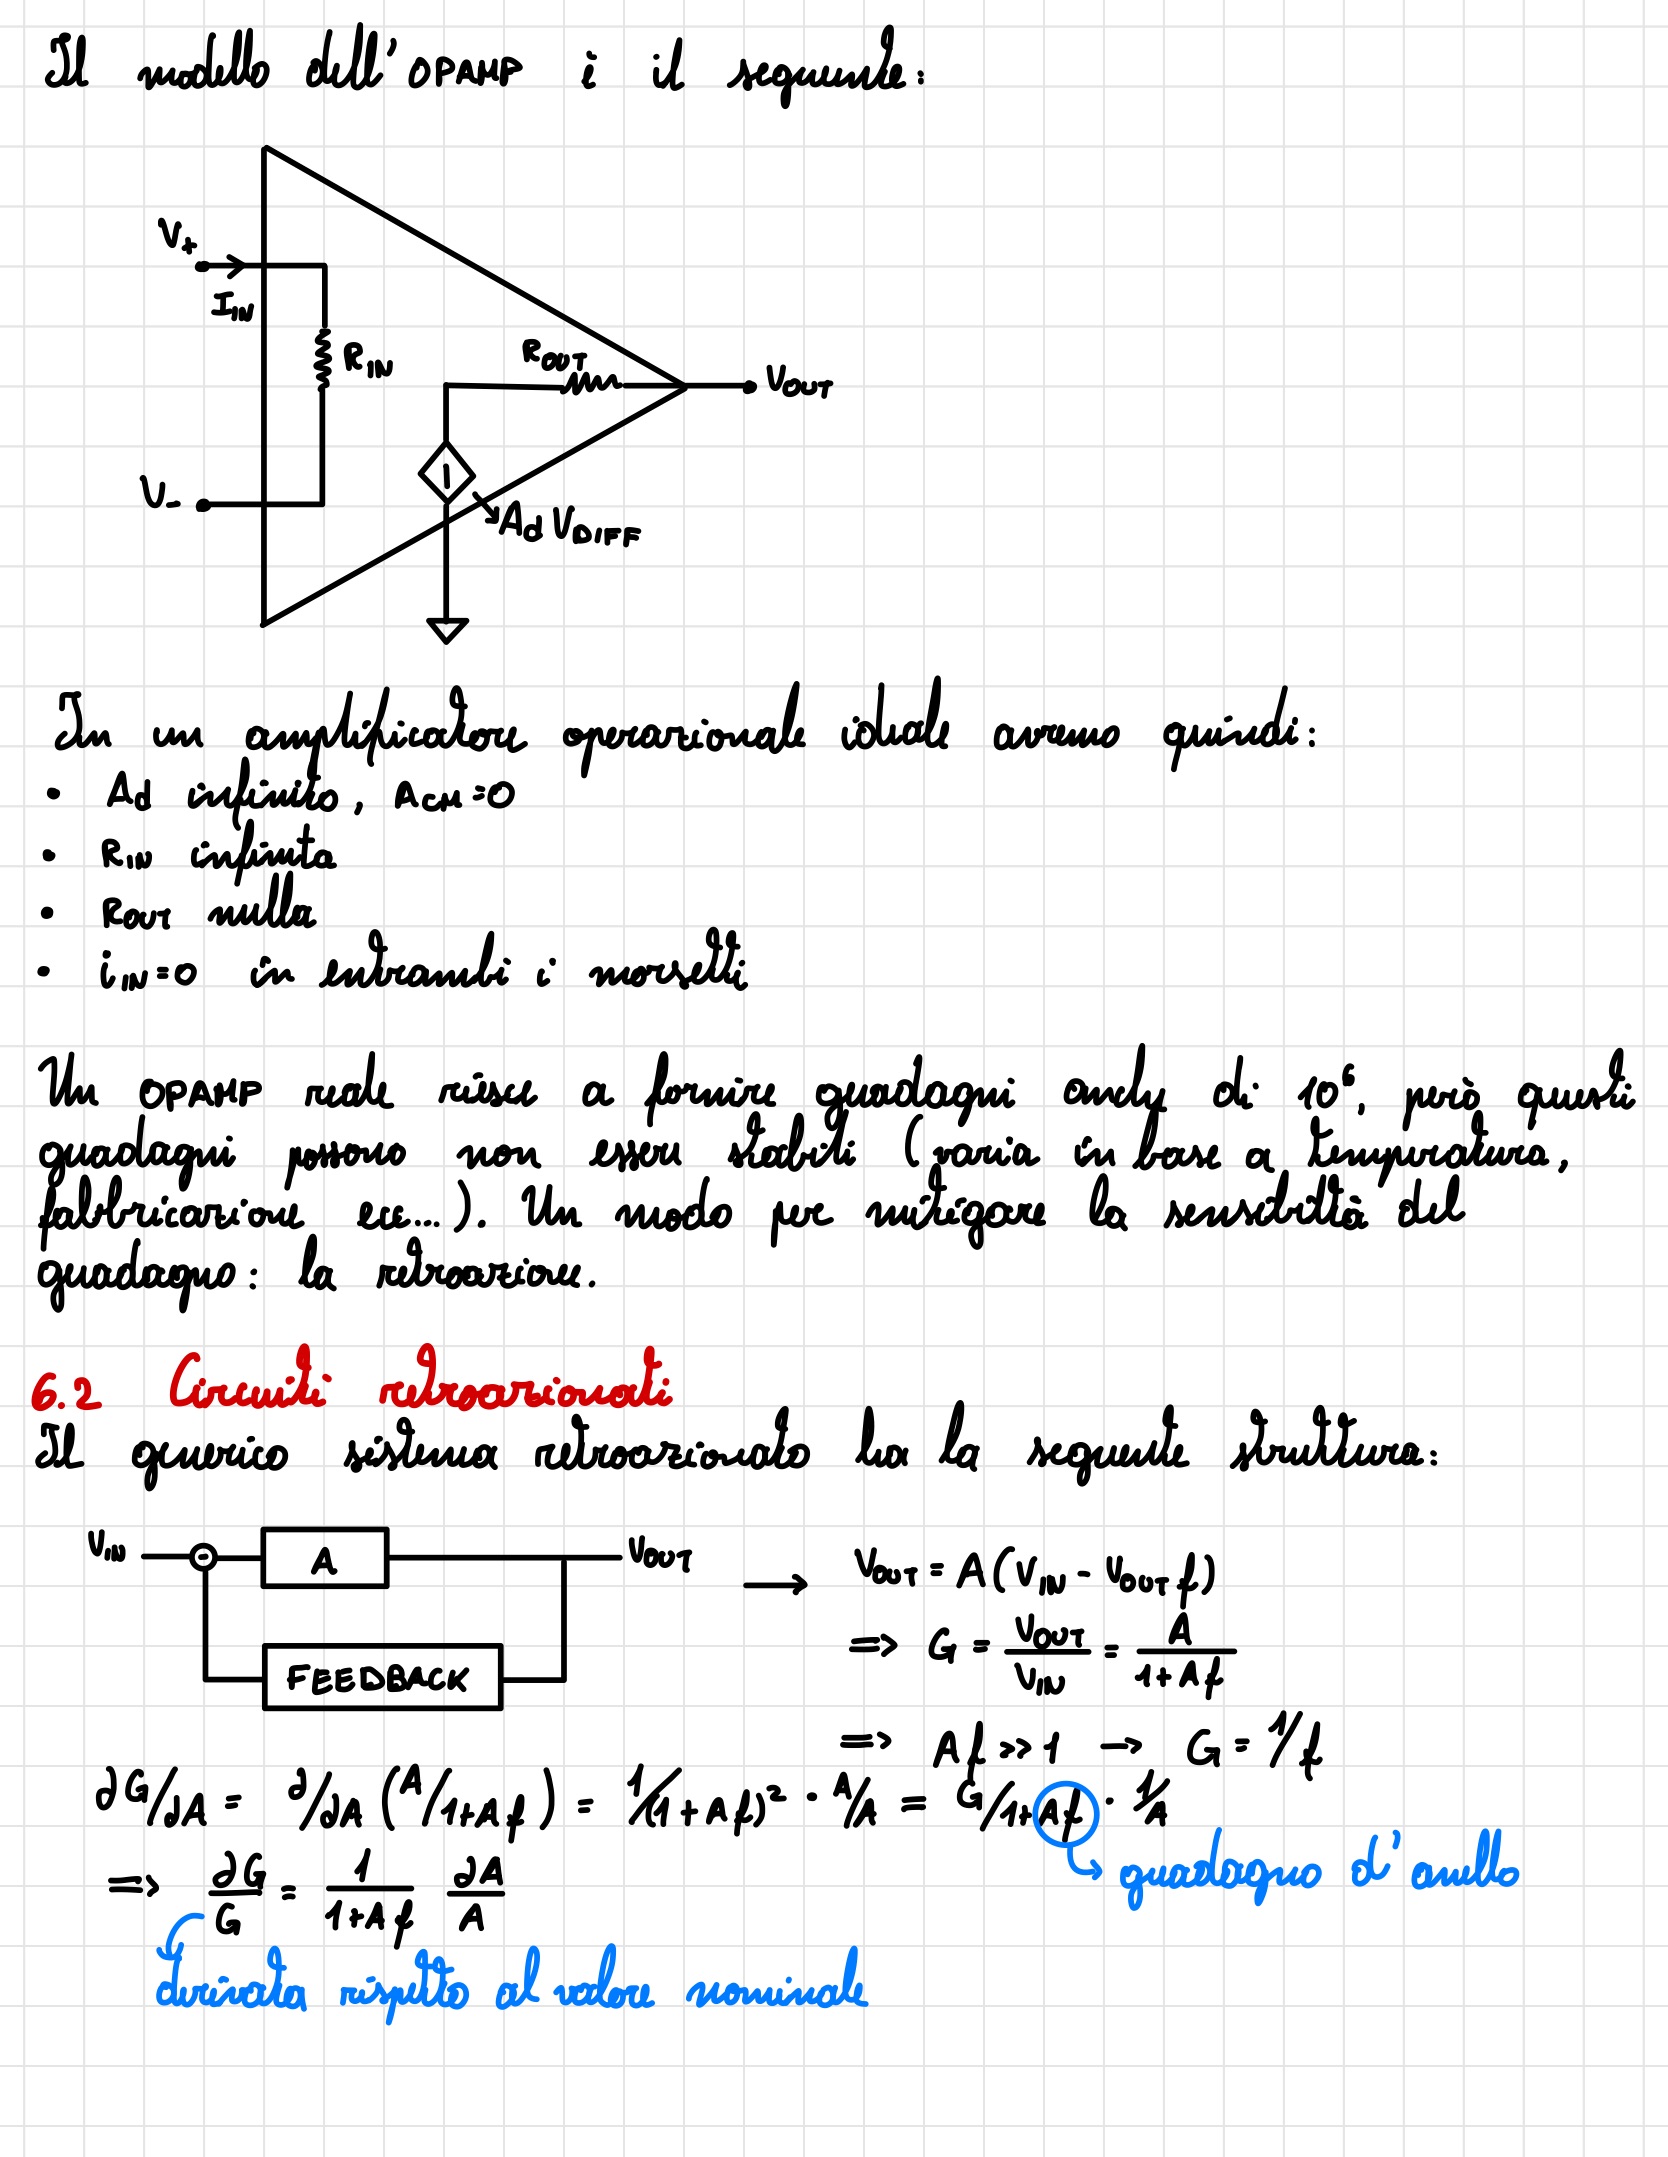 Il modello dell'OPAMP è il seguente:
V+
IIN
RIN
ROUT
VOUT
V-
Ad VDIFF
In un amplificatore operazionale ideale avremo quindi:
• Ad infinito, ACM=0
• RIN infinita
• ROUT nulla
• iIN=0 in entrambi i morsetti
Un OPAMP reale riesce a fornire guadagni anche di 10⁶, però questi
guadagni possono non essere stabili (varia in base a temperatura,
fabbricazione ecc...). Un modo per mitigare la sensibilità del
guadagno: la retroazione.
6.2 Circuiti retroazionati
Il generico sistema retroazionato ha la seguente struttura:
VIN - A VOUT → VOUT = A(VIN - VOUT f)
FEEDBACK ⇒ G = VOUT/VIN = A/(1+Af)
⇒ Af >> 1 → G = 1/f
∂G/∂A = ∂/∂A (A/1+Af) = 1/(1+Af)² · A/A = G/1+Af · 1/A
↳ guadagno d'anello
⇒ ∂G/G = 1/(1+Af) ∂A/A
derivata rispetto al valore nominale